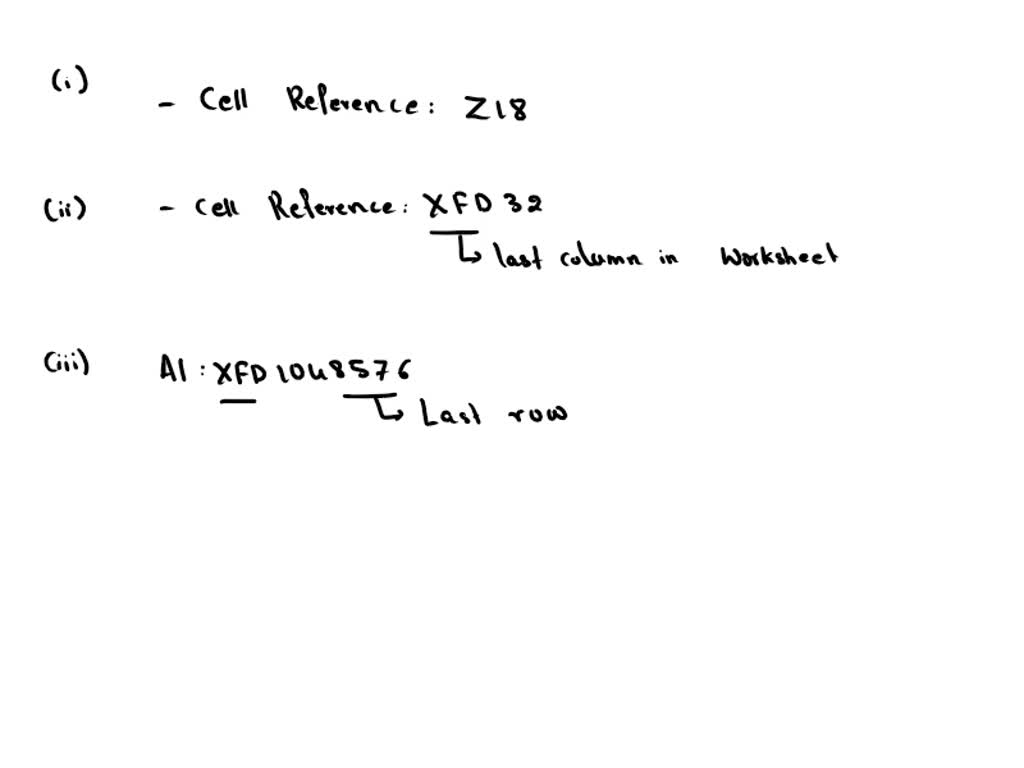 (i)
- Cell Reference: Z18
(ii) - Cell Reference: XFD32
↳ last column in Worksheet
(iii) A1:XFD1048576
↳ Last row